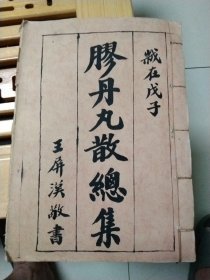 歲在戊子
膠丹丸散總集
王屏漢敬書